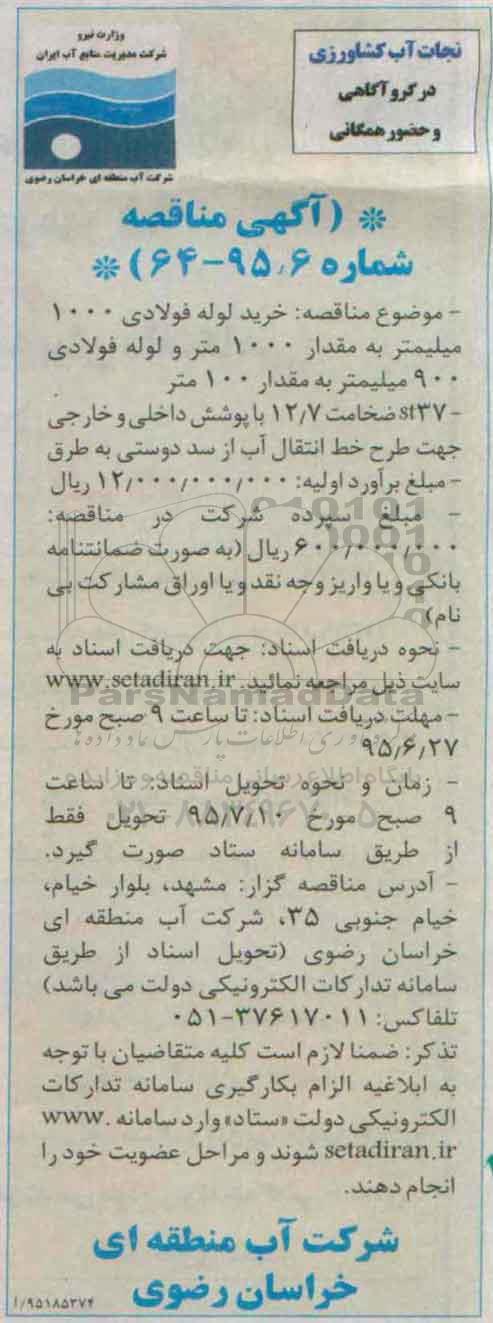 وزارت نیرو
شرکت مدیریت منابع آب ایران
شرکت آب منطقه ای خراسان رضوی
نجات آب کشاورزی
در گرو آگاهی
و حضور همگانی
* (آگهی مناقصه
شماره ۹۵،۶-۶۴) *
- موضوع مناقصه: خرید لوله فولادی ۱۰۰۰
میلیمتر به مقدار ۱۰۰۰ متر و لوله فولادی
۹۰۰ میلیمتر به مقدار ۱۰۰ متر
- st۳۷ ضخامت ۱۲/۷ با پوشش داخلی و خارجی
جهت طرح خط انتقال آب از سد دوستی به طرق
- مبلغ برآورد اولیه: ۱۲/۰۰۰/۰۰۰/۰۰۰ ریال
- مبلغ سپرده شرکت در مناقصه:
۶۰۰/۰۰۰/۰۰۰ ریال (به صورت ضمانتنامه
بانکی و یا واریز وجه نقد و یا اوراق مشارکت بی
نام)
- نحوه دریافت اسناد: جهت دریافت اسناد به
سایت ذیل مراجعه نمائید. www.setadiran.ir
ParsNamadData
- مهلت دریافت اسناد: تا ساعت ۹ صبح مورخ
۹۵/۶/۲۷
- زمان و نحوه تحویل اسناد: تا ساعت
۹ صبح مورخ ۹۵/۷/۱۰ تحویل فقط
از طریق سامانه ستاد صورت گیرد.
- آدرس مناقصه گزار: مشهد، بلوار خیام،
خیام جنوبی ۳۵، شرکت آب منطقه ای
خراسان رضوی (تحویل اسناد از طریق
سامانه تدارکات الکترونیکی دولت می باشد)
تلفاکس: ۳۷۶۱۷۰۱۱-۰۵۱
تذکر: ضمنا لازم است کلیه متقاضیان با توجه
به ابلاغیه الزام بکارگیری سامانه تدارکات
الکترونیکی دولت «ستاد» وارد سامانه www.
setadiran.ir شوند و مراحل عضویت خود را
انجام دهند.
شرکت آب منطقه ای
خراسان رضوی
۹۵۱۸۵۲۷۴/ا